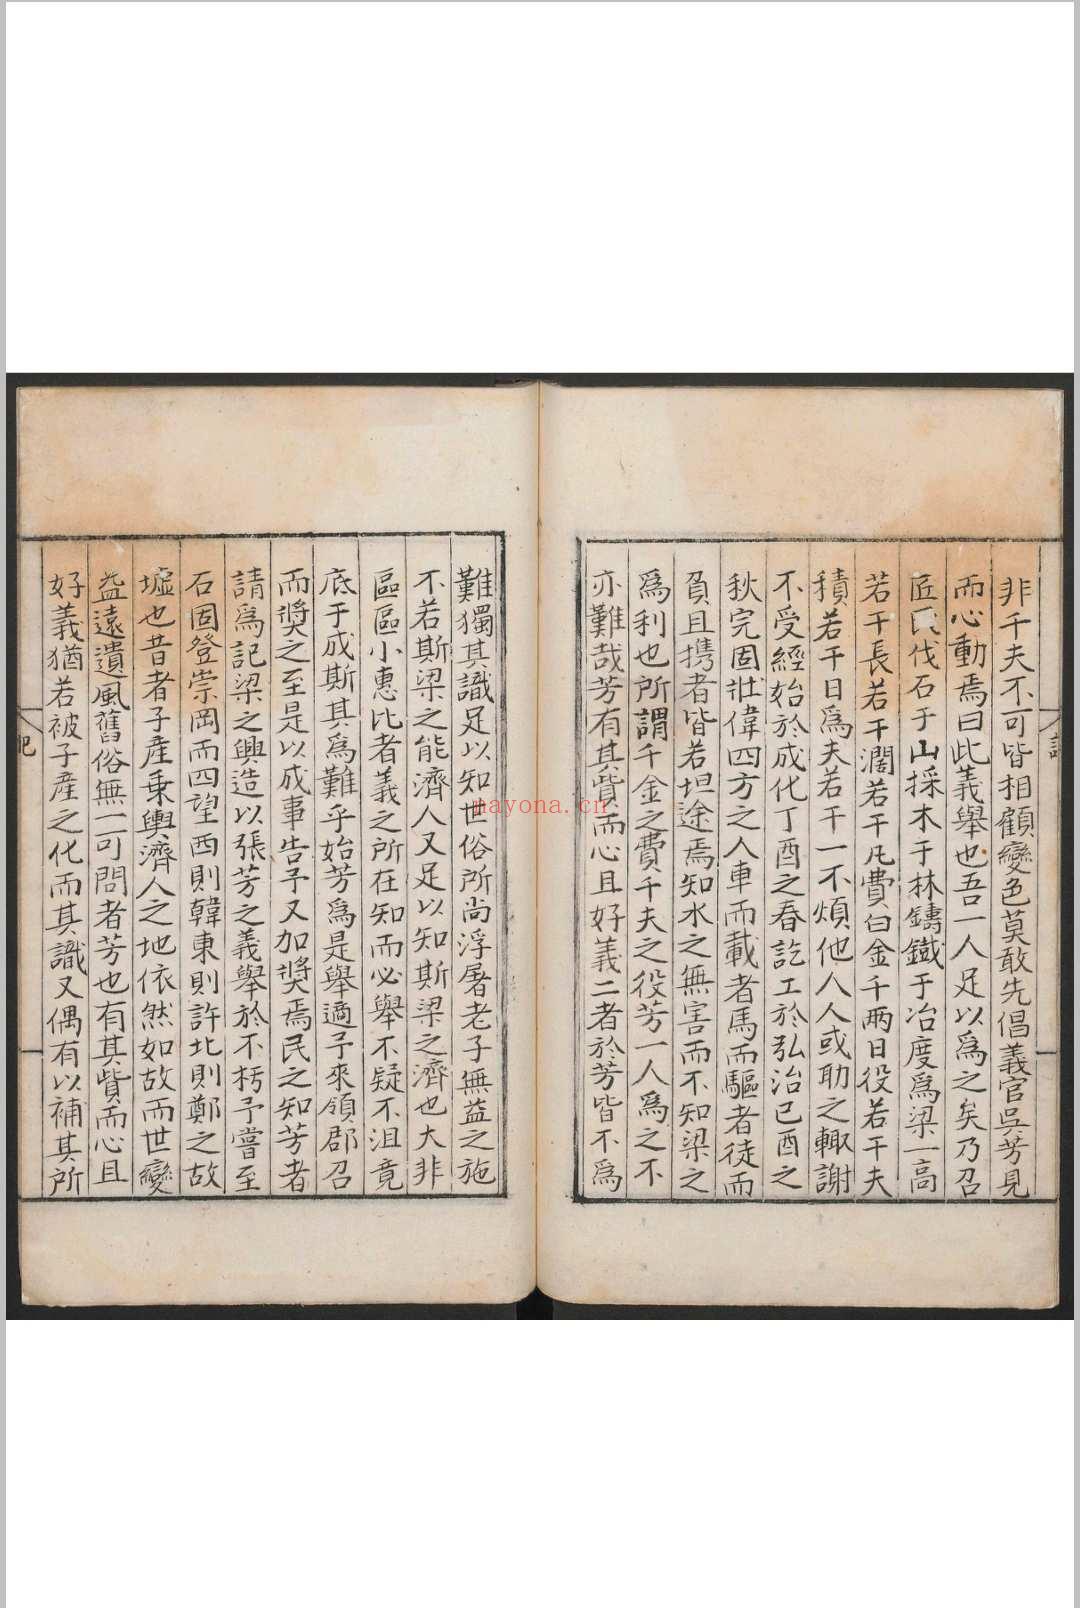 非千夫不可皆相顧變色莫敢先倡義官吳芳見
而心動焉曰此義舉也吾一人足以爲之矣乃召
匠氏伐石于山採木于林鑄鐵于冶度爲梁一高
若干長若干濶若干凡費白金千兩日役若干夫
積若干日爲夫若干一不煩他人人或助之輙謝
不受經始於成化丁酉之春訖工於弘治己酉之
秋完固壯偉四方之人車而載者馬而驅者徒而
負且携者皆若坦途焉知水之無害而不知梁之
爲利也所謂千金之費千夫之役芳一人爲之不
亦難哉芳有其貲而心且好義二者於芳皆不爲
難獨其識足以知世俗所尚浮屠老子無益之施
不若斯梁之能濟人又足以知斯梁之濟也大非
區區小惠比者義之所在知而必舉不疑不沮竟
底于成斯其爲難乎始芳爲是舉適予來領郡召
而奬之至是以成事告予又加奬焉民之知芳者
請爲記梁之興造以張芳之義舉於不朽予嘗至
石固登崇岡而四望西則韓東則許北則鄭之故
墟也昔者子產乗輿濟人之地依然如故而世變
益遠遺風舊俗無一可問者芳也有其貲而心且
好義猶若被子產之化而其識又偶有以補其所
記
nayona.cn